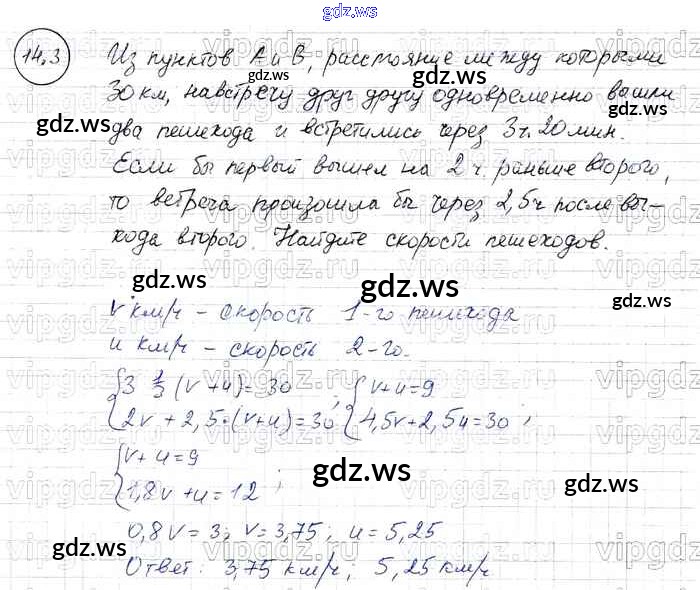 gdz.ws
14.3 Из пунктов А и В, расстояние между которыми
30 км, навстречу друг другу одновременно вышли
два пешехода и встретились через 3 ч. 20 мин.
Если бы первый вышел на 2 ч. раньше второго,
то встреча произошла бы через 2,5 ч после вы-
хода второго. Найдите скорости пешеходов.
v км/ч – скорость 1-го пешехода
u км/ч – скорость 2-го.
{3 1/3 (v + u) = 30 ; {v + u = 9
{2v + 2,5·(v+u) = 30 {4,5v + 2,5u = 30 ;
{v + u = 9
{1,8v + u = 12 ;
0,8v = 3; v = 3,75; u = 5,25
Ответ: 3,75 км/ч; 5,25 км/ч